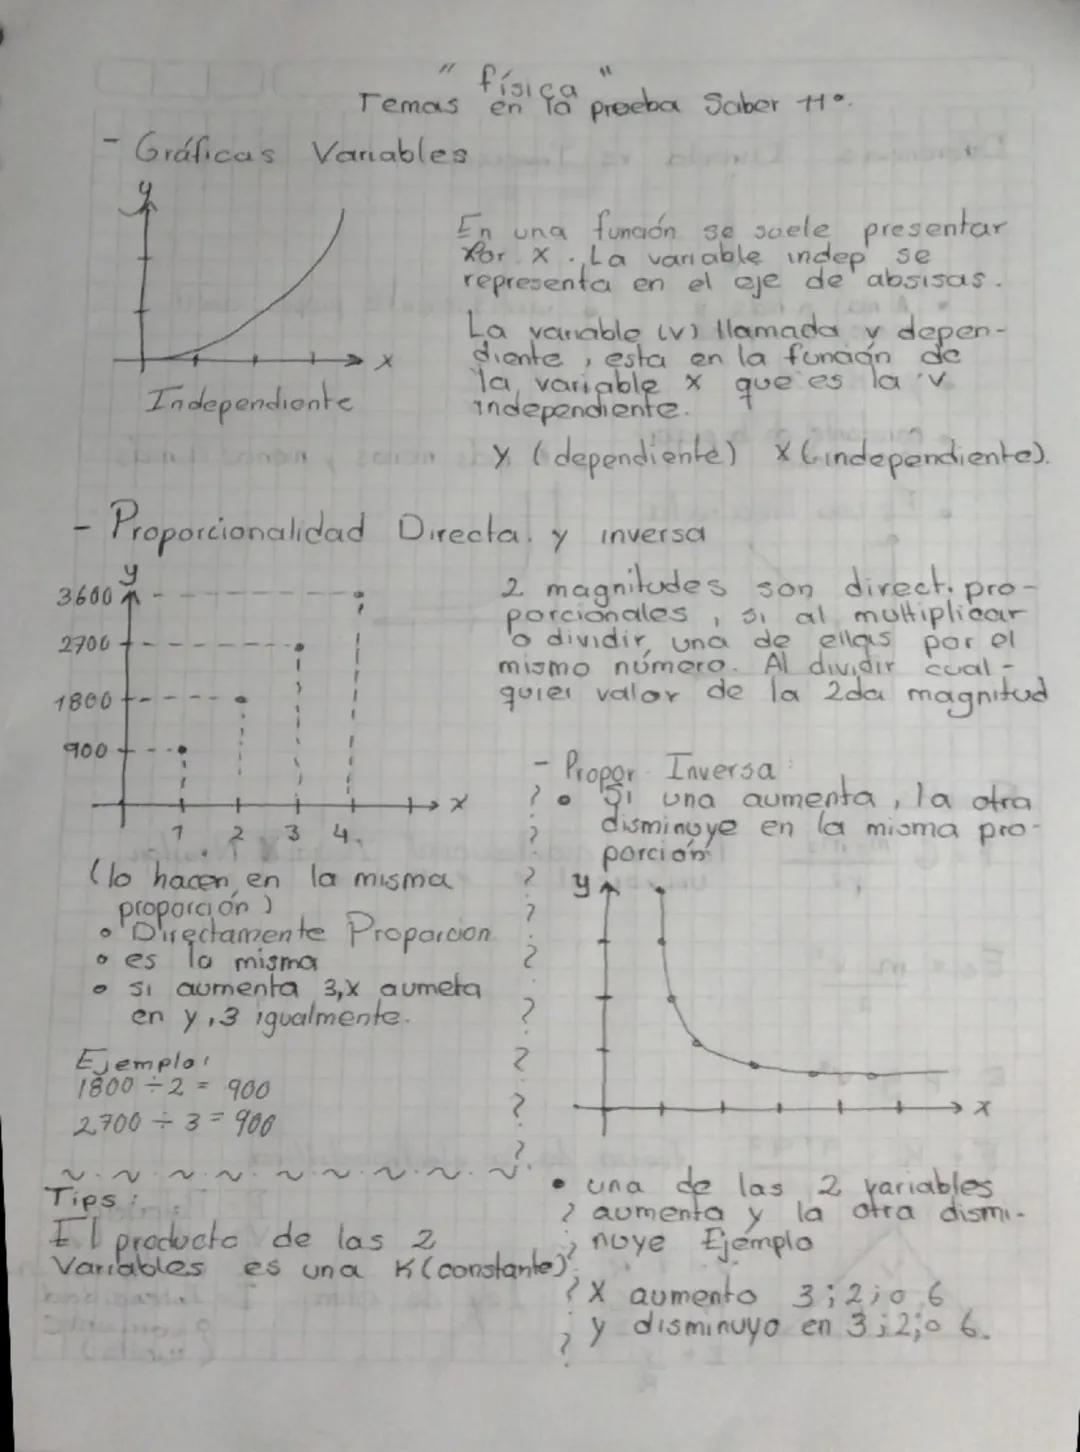 " física "
Temas en la prueba Saber 11°.
- Gráficas Variables
y
x
Independiente
En una función se suele presentar
por x . La variable indep se
representa en el eje de absisas.
La variable (v) llamada v depen-
diente , esta en la función de
la variable x que es la v
independiente.
y (dependiente) x (independiente).
- Proporcionalidad Directa. y inversa
y
3600
2700
1800
900
x
1 2 3 4
2 magnitudes son direct. pro-
porcionales , si al multiplicar
o dividir una de ellas por el
mismo número. Al dividir cual-
quier valor de la 2da magnitud
(lo hacen en la misma
proporción)
• Directamente Proporcion
• es la misma
• si aumenta 3,x aumeta
en y,3 igualmente.
Ejemplo:
1800 ÷ 2 = 900
2700 ÷ 3 = 900
Tips :
El producto de las 2
Variables es una K (constante)
- Propor Inversa:
• Si una aumenta , la otra
disminuye en la misma pro-
porción
y
x
• una de las 2 variables
aumenta y la otra dismi-
nuye Ejemplo
X aumento 3;2;o 6
y disminuyo en 3;2;o 6.